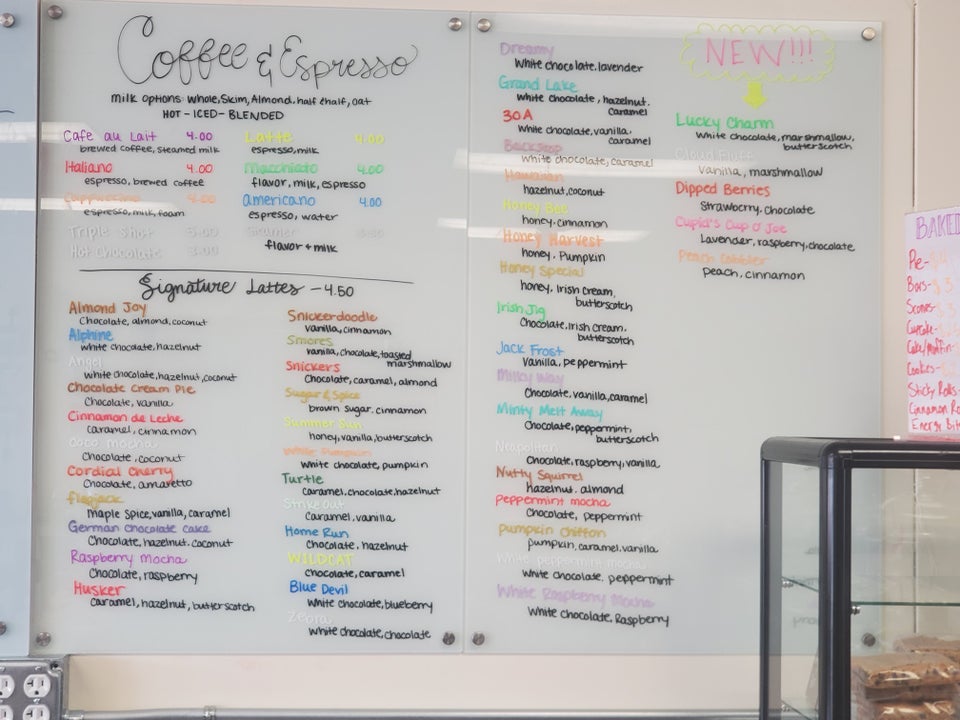 Coffee & Espresso
Milk options: Whole, Skim, Almond, half & half, oat
HOT - ICED - BLENDED
Cafe au Lait 4.00
brewed coffee, steamed milk
Italiano 4.00
espresso, brewed coffee
Cappuccino 4.00
espresso, milk, foam
Triple Shot 5.00
Hot Chocolate 3.00
Latte 4.00
espresso, milk
Macchiato 4.00
flavor, milk, espresso
americano 4.00
espresso, water
Steamer
flavor + milk
Signature Lattes - 4.50
Almond Joy
Chocolate, almond, coconut
Alphine
white chocolate, hazelnut
Angel
white chocolate, hazelnut, coconut
Chocolate Cream Pie
Chocolate, vanilla
Cinnamon de Leche
caramel, cinnamon
Coco mocha
Chocolate, coconut
Cordial Cherry
Chocolate, amaretto
flapjack
Maple Spice, vanilla, caramel
German Chocolate Cake
Chocolate, hazelnut, coconut
Raspberry Mocha
Chocolate, raspberry
Husker
Caramel, hazelnut, butterscotch
Snickerdoodle
vanilla, cinnamon
Smores
vanilla, chocolate, toasted
marshmallow
Snickers
Chocolate, caramel, almond
Sugar & Spice
brown sugar, cinnamon
Summer Sun
honey, vanilla, butterscotch
White Pumpkin
White chocolate, pumpkin
Turtle
Caramel, chocolate, hazelnut
Strike Out
Caramel, vanilla
Home Run
Chocolate, hazelnut
WILDCAT
Chocolate, caramel
Blue Devil
White chocolate, blueberry
Zebra
White chocolate, chocolate
Dreamy
White chocolate, lavender
Grand Lake
White chocolate, hazelnut,
Caramel
30A
White chocolate, vanilla,
caramel
Backstop
White chocolate, caramel
Hawaiian
hazelnut, coconut
Honey Bee
honey, cinnamon
Honey Harvest
honey, Pumpkin
Honey Special
honey, Irish cream,
butterscotch
Irish Jig
Chocolate, Irish Cream,
butterscotch
Jack Frost
Vanilla, peppermint
Milky Way
Chocolate, vanilla, caramel
Minty Melt Away
Chocolate, peppermint,
butterscotch
Neapolitan
Chocolate, raspberry, vanilla
Nutty Squirrel
hazelnut, almond
Peppermint mocha
Chocolate, peppermint
Pumpkin Chiffon
Pumpkin, caramel, vanilla
White peppermint mocha
White chocolate, peppermint
White Raspberry Mocha
White chocolate, Raspberry
NEW!!!
Lucky Charm
White chocolate, marshmallow,
butterscotch
Cloud Fluff
Vanilla, marshmallow
Dipped Berries
Strawberry, chocolate
Cupid's Cup o' Joe
Lavender, raspberry, chocolate
Peach Cobbler
peach, cinnamon
BAKED
Pie-
Bars-
Scones-
Cupcake-
Cake/Muffin-
Cookies-
Sticky Rolls-
Cinnamon Ro
Energy Bit